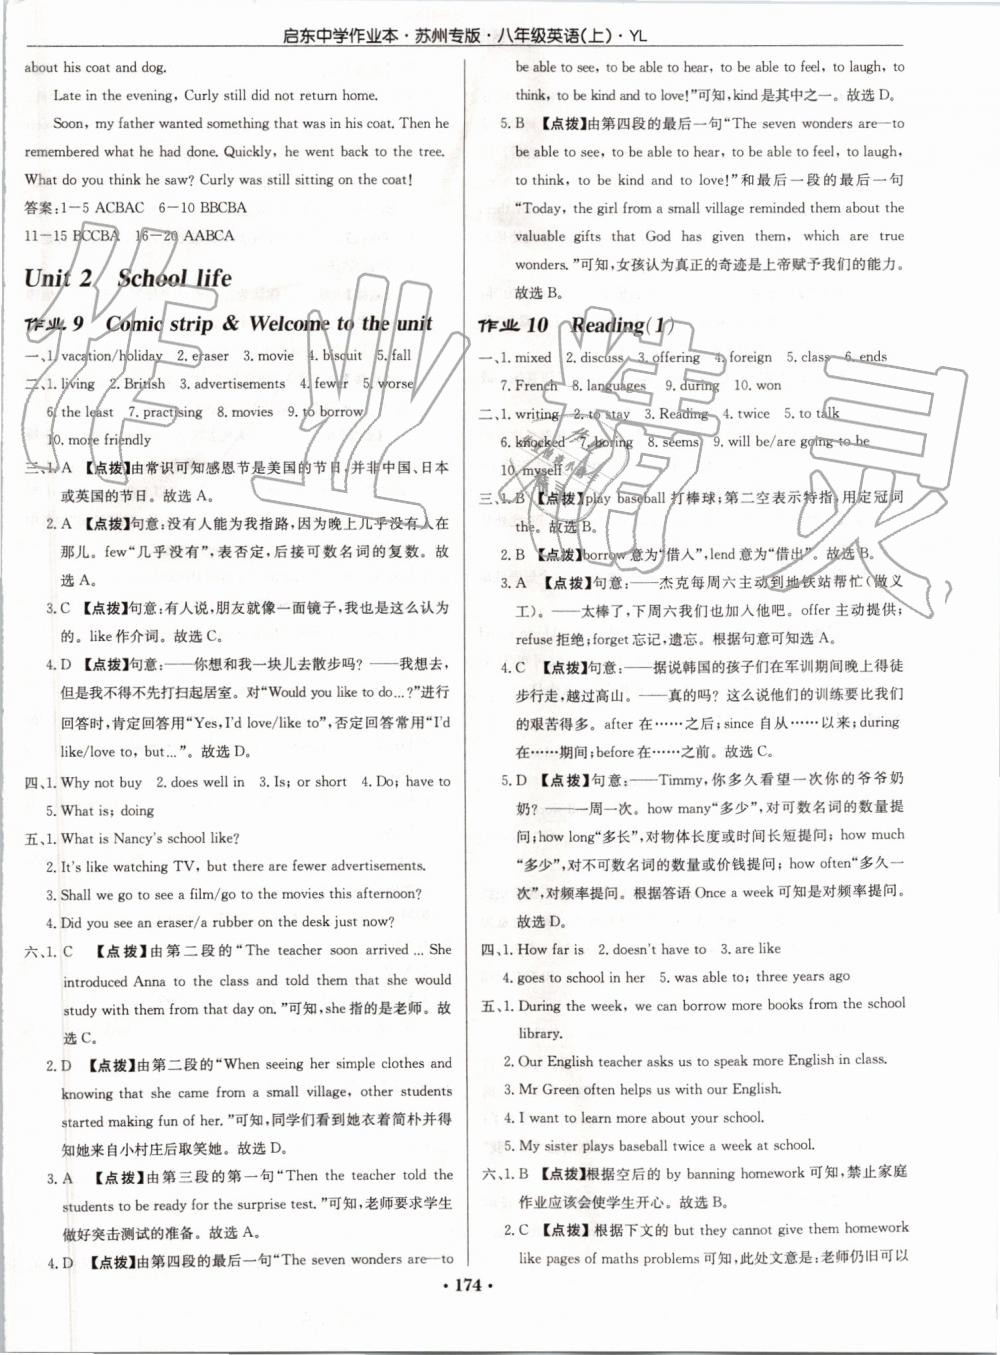 启东中学作业本·苏州专版·八年级英语(上)·YL
about his coat and dog.
Late in the evening, Curly still did not return home.
Soon, my father wanted something that was in his coat. Then he
remembered what he had done. Quickly, he went back to the tree.
What do you think he saw? Curly was still sitting on the coat!
答案:1—5 ACBAC 6—10 BBCBA
11—15 BCCBA 16—20 AABCA
Unit 2 School life
作业 9 Comic strip & Welcome to the unit
一、1. vacation/holiday 2. eraser 3. movie 4. biscuit 5. fall
二、1. living 2. British 3. advertisements 4. fewer 5. worse
6. the least 7. practising 8. movies 9. to borrow
10. more friendly
三、1. A 【点拨】由常识可知感恩节是美国的节日,并非中国、日本
或英国的节日。故选 A。
2. A 【点拨】句意:没有人能为我指路,因为晚上几乎没有人在
那儿。few“几乎没有”,表否定,后接可数名词的复数。故
选 A。
3. C 【点拨】句意:有人说,朋友就像一面镜子,我也是这么认为
的。like 作介词。故选 C。
4. D 【点拨】句意:——你想和我一块儿去散步吗? ——我想去,
但是我不得不先打扫起居室。对“Would you like to do...?”进行
回答时,肯定回答用“Yes, I'd love/like to”,否定回答常用“I'd
like/love to, but...”。故选 D。
四、1. Why not buy 2. does well in 3. Is; or short 4. Do; have to
5. What is; doing
五、1. What is Nancy's school like?
2. It's like watching TV, but there are fewer advertisements.
3. Shall we go to see a film/go to the movies this afternoon?
4. Did you see an eraser/a rubber on the desk just now?
六、1. C 【点拨】由第二段的“The teacher soon arrived ... She
introduced Anna to the class and told them that she would
study with them from then on.”可知,she 指的是老师。故
选 C。
2. D 【点拨】由第二段的“When seeing her simple clothes and
knowing that she came from a small village, other students
started making fun of her.”可知,同学们看到她衣着简朴并得
知她来自小村庄后取笑她。故选 D。
3. A 【点拨】由第三段的第一句“Then the teacher told the
students to be ready for the surprise test.”可知,老师要求学生
做好突击测试的准备。故选 A。
4. D 【点拨】由第四段的最后一句“The seven wonders are—to
be able to see, to be able to hear, to be able to feel, to laugh, to
think, to be kind and to love!”可知,kind 是其中之一。故选 D。
5. B 【点拨】由第四段的最后一句“The seven wonders are—to
be able to see, to be able to hear, to be able to feel, to laugh,
to think, to be kind and to love!”和最后一段的最后一句
“Today, the girl from a small village reminded them about the
valuable gifts that God has given them, which are true
wonders.”可知,女孩认为真正的奇迹是上帝赋予我们的能力。
故选 B。
作业 10 Reading(1)
一、1. mixed 2. discuss 3. offering 4. foreign 5. class 6. ends
7. French 8. languages 9. during 10. won
二、1. writing 2. to stay 3. Reading 4. twice 5. to talk
6. knocked 7. boring 8. seems 9. will be/are going to be
10. myself
三、1. B 【点拨】play baseball 打棒球;第二空表示特指,用定冠词
the。故选 B。
2. B 【点拨】borrow 意为“借入”,lend 意为“借出”。故选 B。
3. A 【点拨】句意:——杰克每周六主动到地铁站帮忙(做义
工)。——太棒了,下周六我们也加入他吧。offer 主动提供;
refuse 拒绝;forget 忘记,遗忘。根据句意可知选 A。
4. C 【点拨】句意:——据说韩国的孩子们在军训期间晚上得徒
步行走,越过高山。——真的吗? 这么说他们的训练要比我们
的艰苦得多。after 在……之后;since 自从……以来;during
在……期间;before 在……之前。故选 C。
5. D 【点拨】句意:——Timmy,你多久看望一次你的爷爷奶
奶? ——一周一次。how many“多少”,对可数名词的数量提
问;how long“多长”,对物体长度或时间长短提问;how much
“多少”,对不可数名词的数量或价钱提问;how often“多久一
次”,对频率提问。根据答语 Once a week 可知是对频率提问。
故选 D。
四、1. How far is 2. doesn't have to 3. are like
4. goes to school in her 5. was able to; three years ago
五、1. During the week, we can borrow more books from the school
library.
2. Our English teacher asks us to speak more English in class.
3. Mr Green often helps us with our English.
4. I want to learn more about your school.
5. My sister plays baseball twice a week at school.
六、1. B 【点拨】根据空后的 by banning homework 可知,禁止家庭
作业应该会使学生开心。故选 B。
2. C 【点拨】根据下文的 but they cannot give them homework
like pages of maths problems 可知,此处文意是:老师仍旧可以
· 174 ·
作业精灵